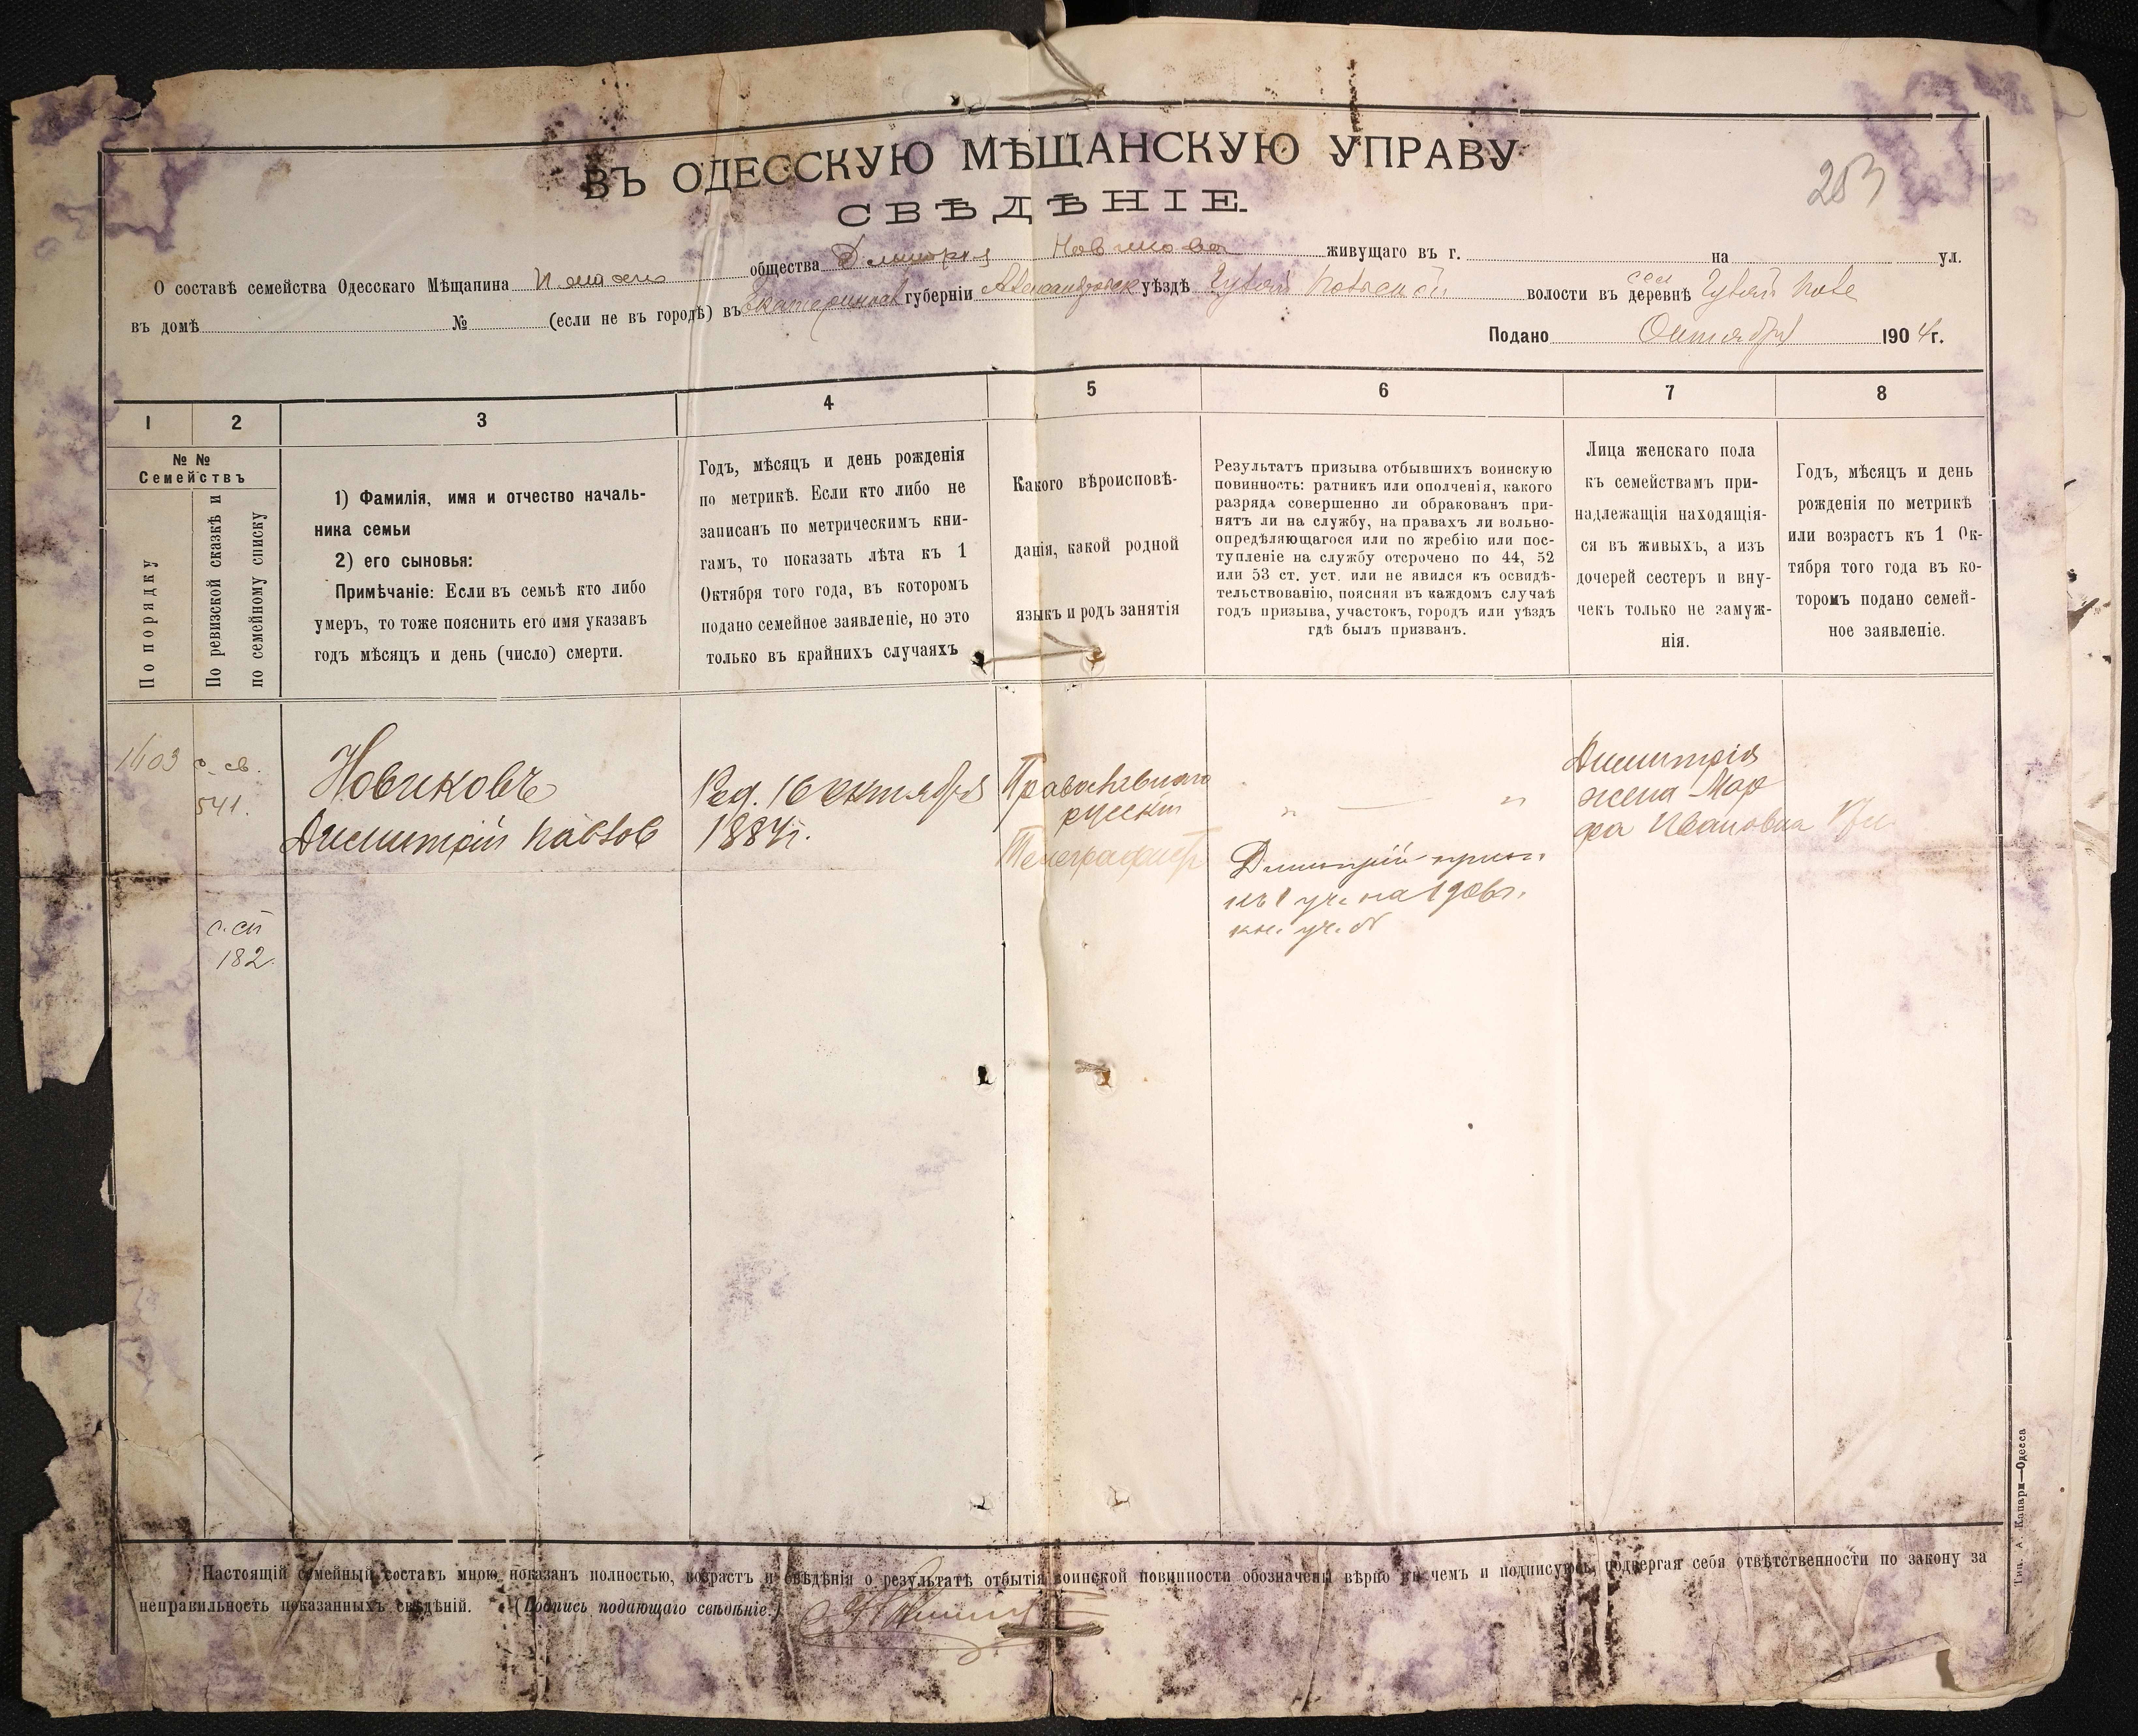 ВЪ ОДЕССКУЮ МѢЩАНСКУЮ УПРАВУ
СВѢДѢНІЕ.
203
О составѣ семейства Одесскаго Мѣщанина общества Дмитрія Новикова живущаго въ г. на ул.
въ домѣ № (если не въ городѣ) въ Екатеринослав губерніи Александровск уѣздѣ волости въ деревнѣ
сел
Подано Октября 1904 г.
1 2 3 4 5 6 7 8
№ № Семействъ
По порядку
По ревизской сказкѣ и по семейному списку
1) Фамилія, имя и отчество началь-
ника семьи
2) его сыновья:
Примѣчаніе: Если въ семьѣ кто либо
умеръ, то тоже пояснить его имя указавъ
годъ мѣсяцъ и день (число) смерти.
Годъ, мѣсяцъ и день рожденія
по метрикѣ. Если кто либо не
записанъ по метрическимъ кни-
гамъ, то показать лѣта къ 1
Октября того года, въ которомъ
подано семейное заявленіе, но это
только въ крайнихъ случаяхъ
Какого вѣроисповѣ-
данія, какой родной
языкъ и родъ занятія
Результатъ призыва отбывшихъ воинскую
повинность: ратникъ или ополченія, какого
разряда совершенно ли обракованъ при-
нятъ ли на службу, на правахъ ли вольно-
опредѣляющагося или по жребію или пос-
тупленіе на службу отсрочено по 44, 52
или 53 ст. уст. или не явился къ освидѣ-
тельствованію, поясняя въ каждомъ случаѣ
годъ призыва, участокъ, городъ или уѣздъ
гдѣ былъ призванъ.
Лица женскаго пола
къ семействамъ при-
надлежащія находящія-
ся въ живыхъ, а изъ
дочерей сестеръ и вну-
чекъ только не замуж-
нія.
Годъ, мѣсяцъ и день
рожденія по метрикѣ
или возрастъ къ 1 Ок-
тября того года въ ко-
торомъ подано семей-
ное заявленіе.
1403
с. св.
541.
с. сп
182.
Новиковъ
Димитрій Павлов
Род. 16 октября
1884 г.
Православнаго
русскій
Телеграфистъ
" — "
Дмитрій припис.
къ 1 уч. на 1906 г.
Димитрія
жена Мар
фа Ивановна
Настоящій семейный составъ мною показанъ полностью, возрастъ и свѣдѣнія о результатѣ отбытія воинской повинности обозначены вѣрно въ чемъ и подписуюсь подвергая себя отвѣтственности по закону за
неправильность показанныхъ свѣдѣній. (Подпись подающаго свѣдѣніе.)
Тип. А. Капари—Одесса